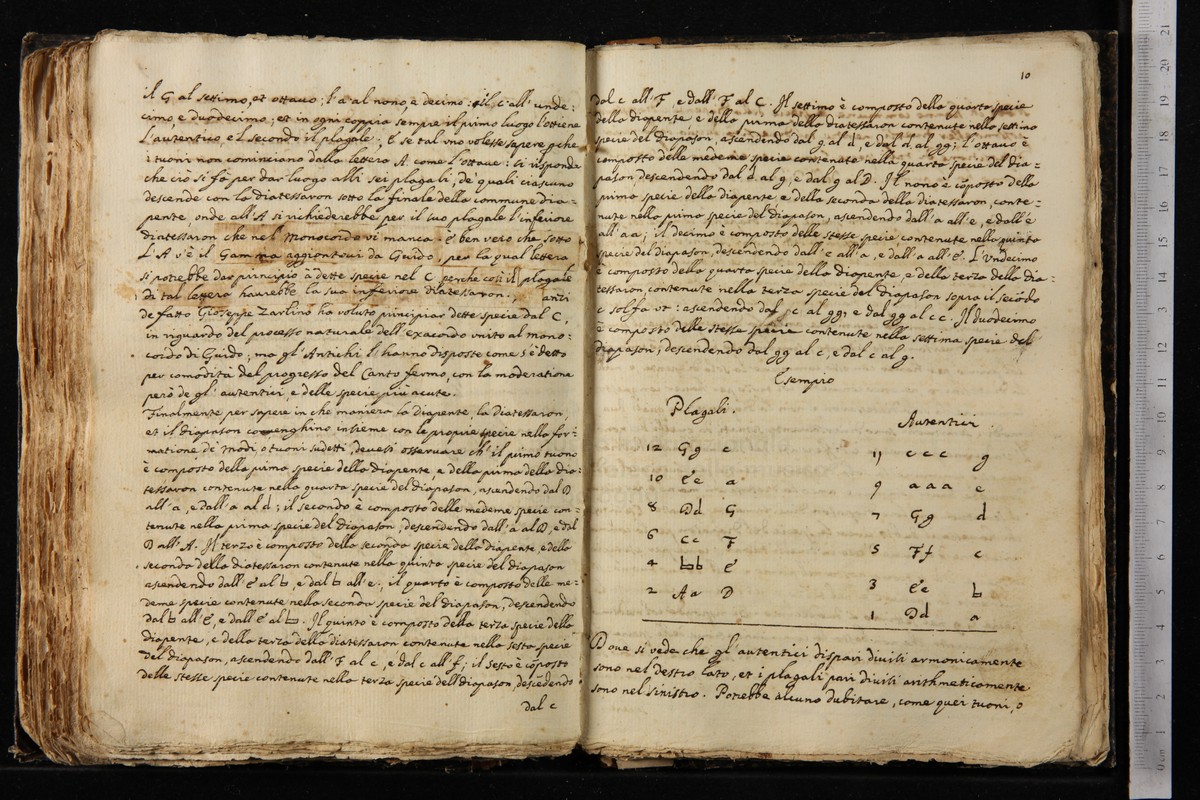 il G al settimo, et ottauo; l'a al nono, e decimo; il c all' unde:
cimo e duodecimo; et in ogni coppia sempre il primo luogo l'ottiene
l'autentico e il secondo il plagale. E se tal vno volesse sapere pche
i tuoni non cominciano dalla lettera A. come l'ottaue: Si risponde
che ciò si fà per dar luogo alli sei plagali, de' quali ciascuno
descende con la diatessaron sotto la finale della commune dia=
pente, onde all'A si richiederebbe per il suo plagale l'inferiore
diatessaron che nel Monocordo vi manca. È ben vero che sotto
l'A v'è il Gamma aggiontoui da Guido, per la qual lettera
si potrebbe dar principio à dette specie nel C, perche così il plagale
di tal lettera haurebbe la sua inferiore diatessaron., anzi
de fatto Gioseppe Zarlino ha voluto principiar dette specie dal C,
in riguardo del processo naturale dell'Exacordo vnito al mono:
cordo di Guido; ma gl' Antichi l'hanno disposte come s'è detto
per comodità del progresso del Canto fermo, con la moderatione
però de gl' autentici, e delle specie più acute.
Finalmente per sapere in che maniera la Diapente, la Diatessaron,
et il diapason conuenghino insieme con le proprie specie nella for=
matione de' modi o tuoni sudetti, deuesi osseruare ch' il primo tuono
è composto della prima specie della diapente e della prima della dia:
tessaron contenute nella quarta specie del diapason, ascendendo dal D
all'a, e dall'a al d; il secondo è composto delle medeme specie con=
tenute nella prima specie del diapason, descendendo dall'a al D, e dal
D all'A. Il terzo è composto della seconda specie della diapente e della
seconda della diatessaron contenute nella quinta specie del diapason
ascendendo dall'E al b, e dal b all'e; il quarto è composto delle me=
deme specie contenute nella seconda specie del diapason, descendendo
dal b all'E, e dall'E al b. Il quinto è composto della terza specie della
diapente, e della terza della diatessaron contenute nella sesta specie
del diapason, ascendendo dall'F al c, e dal c all'f; il Sesto è cõposto
delle stesse specie contenute nella terza specie dell diapason, descẽdendo
dal c
10
dal c all'F, e dall'F al C. Il settimo è composto della quarta specie
della diapente e della prima della diatessaron contenute nella settima
specie del diapason, ascendendo dal g al d, e dal d al gg; l'ottauo è
composto delle medeme specie contenute nella quarta specie del dia=
pason descendendo dal d al g e dal g al D. Il nono è cõposto della
prima specie della diapente e della seconda della diatessaron, conte=
nute nella prima specie del diapason, ascendendo dall'a all'e, e dall'e
all'aa; il decimo è composto delle stesse specie contenute nella quinta
specie del diapason, descendendo dall'e all'a, e dall'a all'E. L'Undecimo
è composto della quarta specie della diapente, e della terza della dia=
tessaron contenute nella terza specie del diapason sopra il secõdo
c solfa vt: ascendendo dal c al gg, e dal gg al cc. Il duodecimo
è composto delle stesse specie contenute nella settima specie del
diapason, descendendo dal gg al c, e dal c al g.
Esempio
Plagali. Autentici.
12 Gg c 11 ccc g
10 Ee a 9 aaa e
8 Dd G 7 Gg d
6 cc F 5 Ff c
4 bb E 3 Ee b
2 Aa D 1 Dd a
Doue si vede che gl' autentici dispari diuisi armonicamente
sono nel destro lato, et i plagali pari diuisi arithmeticamente
sono nel sinistro. Potrebbe alcuno dubitare, come quei tuoni, o